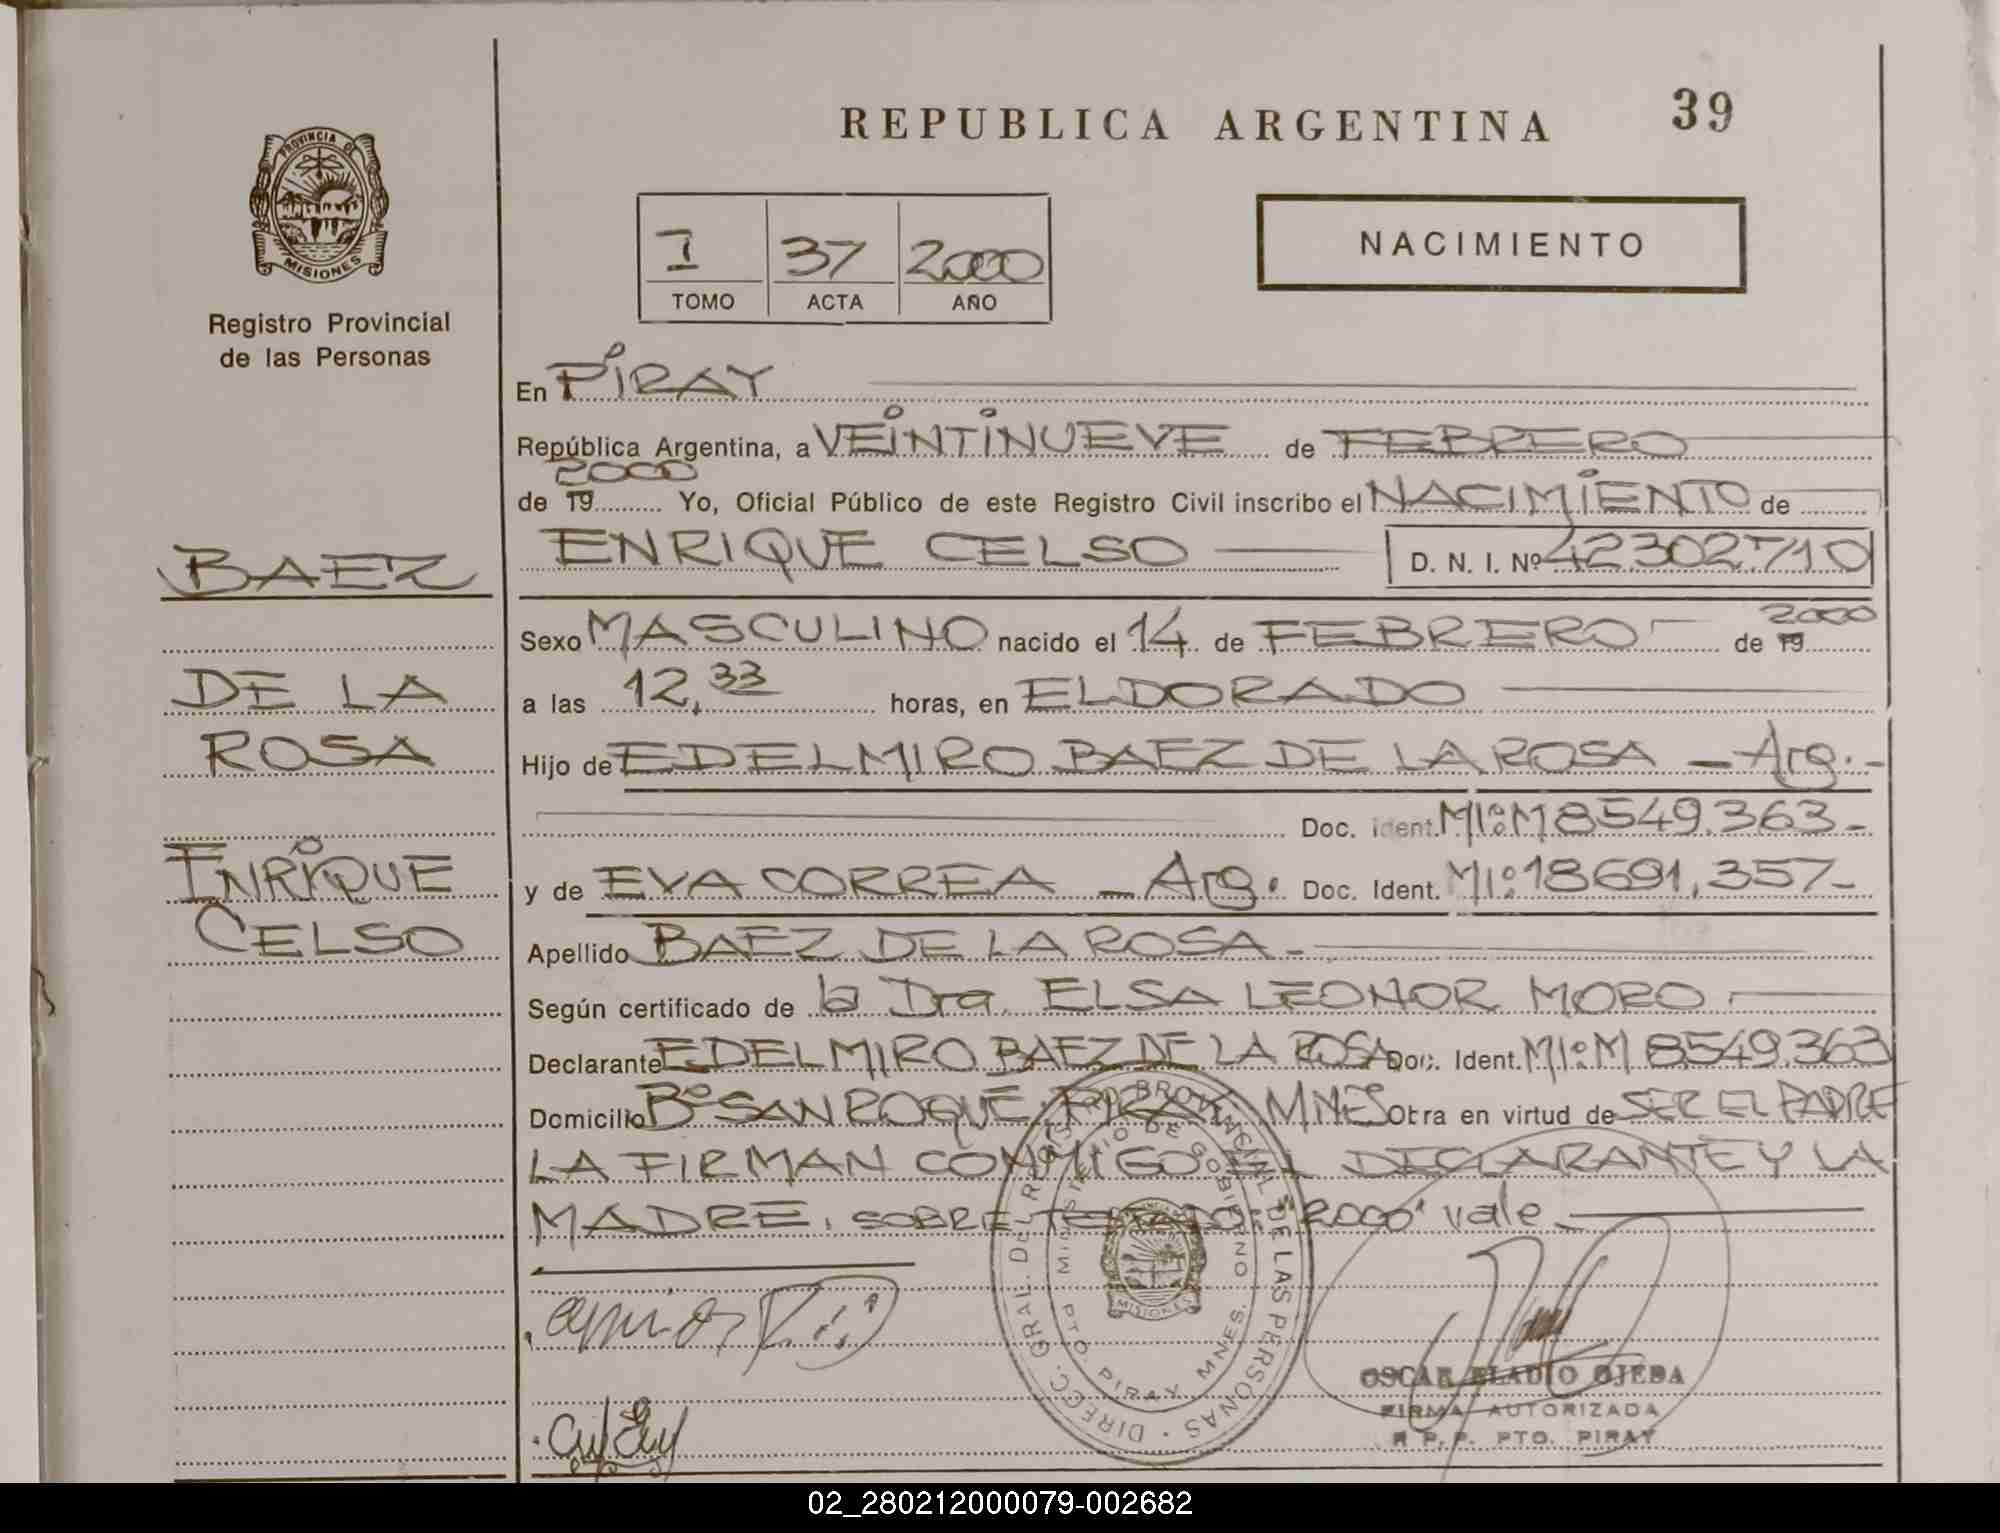 REPUBLICA ARGENTINA 39
PROVINCIA DE
MISIONES
Registro Provincial
de las Personas
I 37 2000
TOMO ACTA AÑO
NACIMIENTO
BAEZ
DE LA
ROSA
ENRIQUE
CELSO
En PIRAY
República Argentina, a VEINTINUEVE de FEBRERO
2000
de 19 Yo, Oficial Público de este Registro Civil inscribo el NACIMIENTO de
ENRIQUE CELSO D. N. I. Nº 42.302.710
Sexo MASCULINO nacido el 14 de FEBRERO de 19 2000
a las 12,33 horas, en ELDORADO
Hijo de EDELMIRO BAEZ DE LA ROSA - Arg.-
Doc. ident. MIº M 8549.363-
y de EVA CORREA - Arg. Doc. Ident. MIº 18691.357-
Apellido BAEZ DE LA ROSA -
Según certificado de la Dra. ELSA LEONOR MORO
Declarante EDELMIRO BAEZ DE LA ROSA Doc. Ident. MIº M 8.549.363
Domicilio Bº SAN ROQUE. PIRAY MNES Obra en virtud de SER EL PADRE
LA FIRMAN CONMIGO EL DECLARANTE Y LA
MADRE. SOBRE TESTADO: "2000" vale
DIREC. GRAL. DEL REGISTRO PROVINCIAL DE LAS PERSONAS
MINISTERIO DE GOBIERNO
PTO. PIRAY MNES.
MISIONES
OSCAR ELADIO OJEDA
FIRMA AUTORIZADA
R.P.P. PTO. PIRAY
02_280212000079-002682